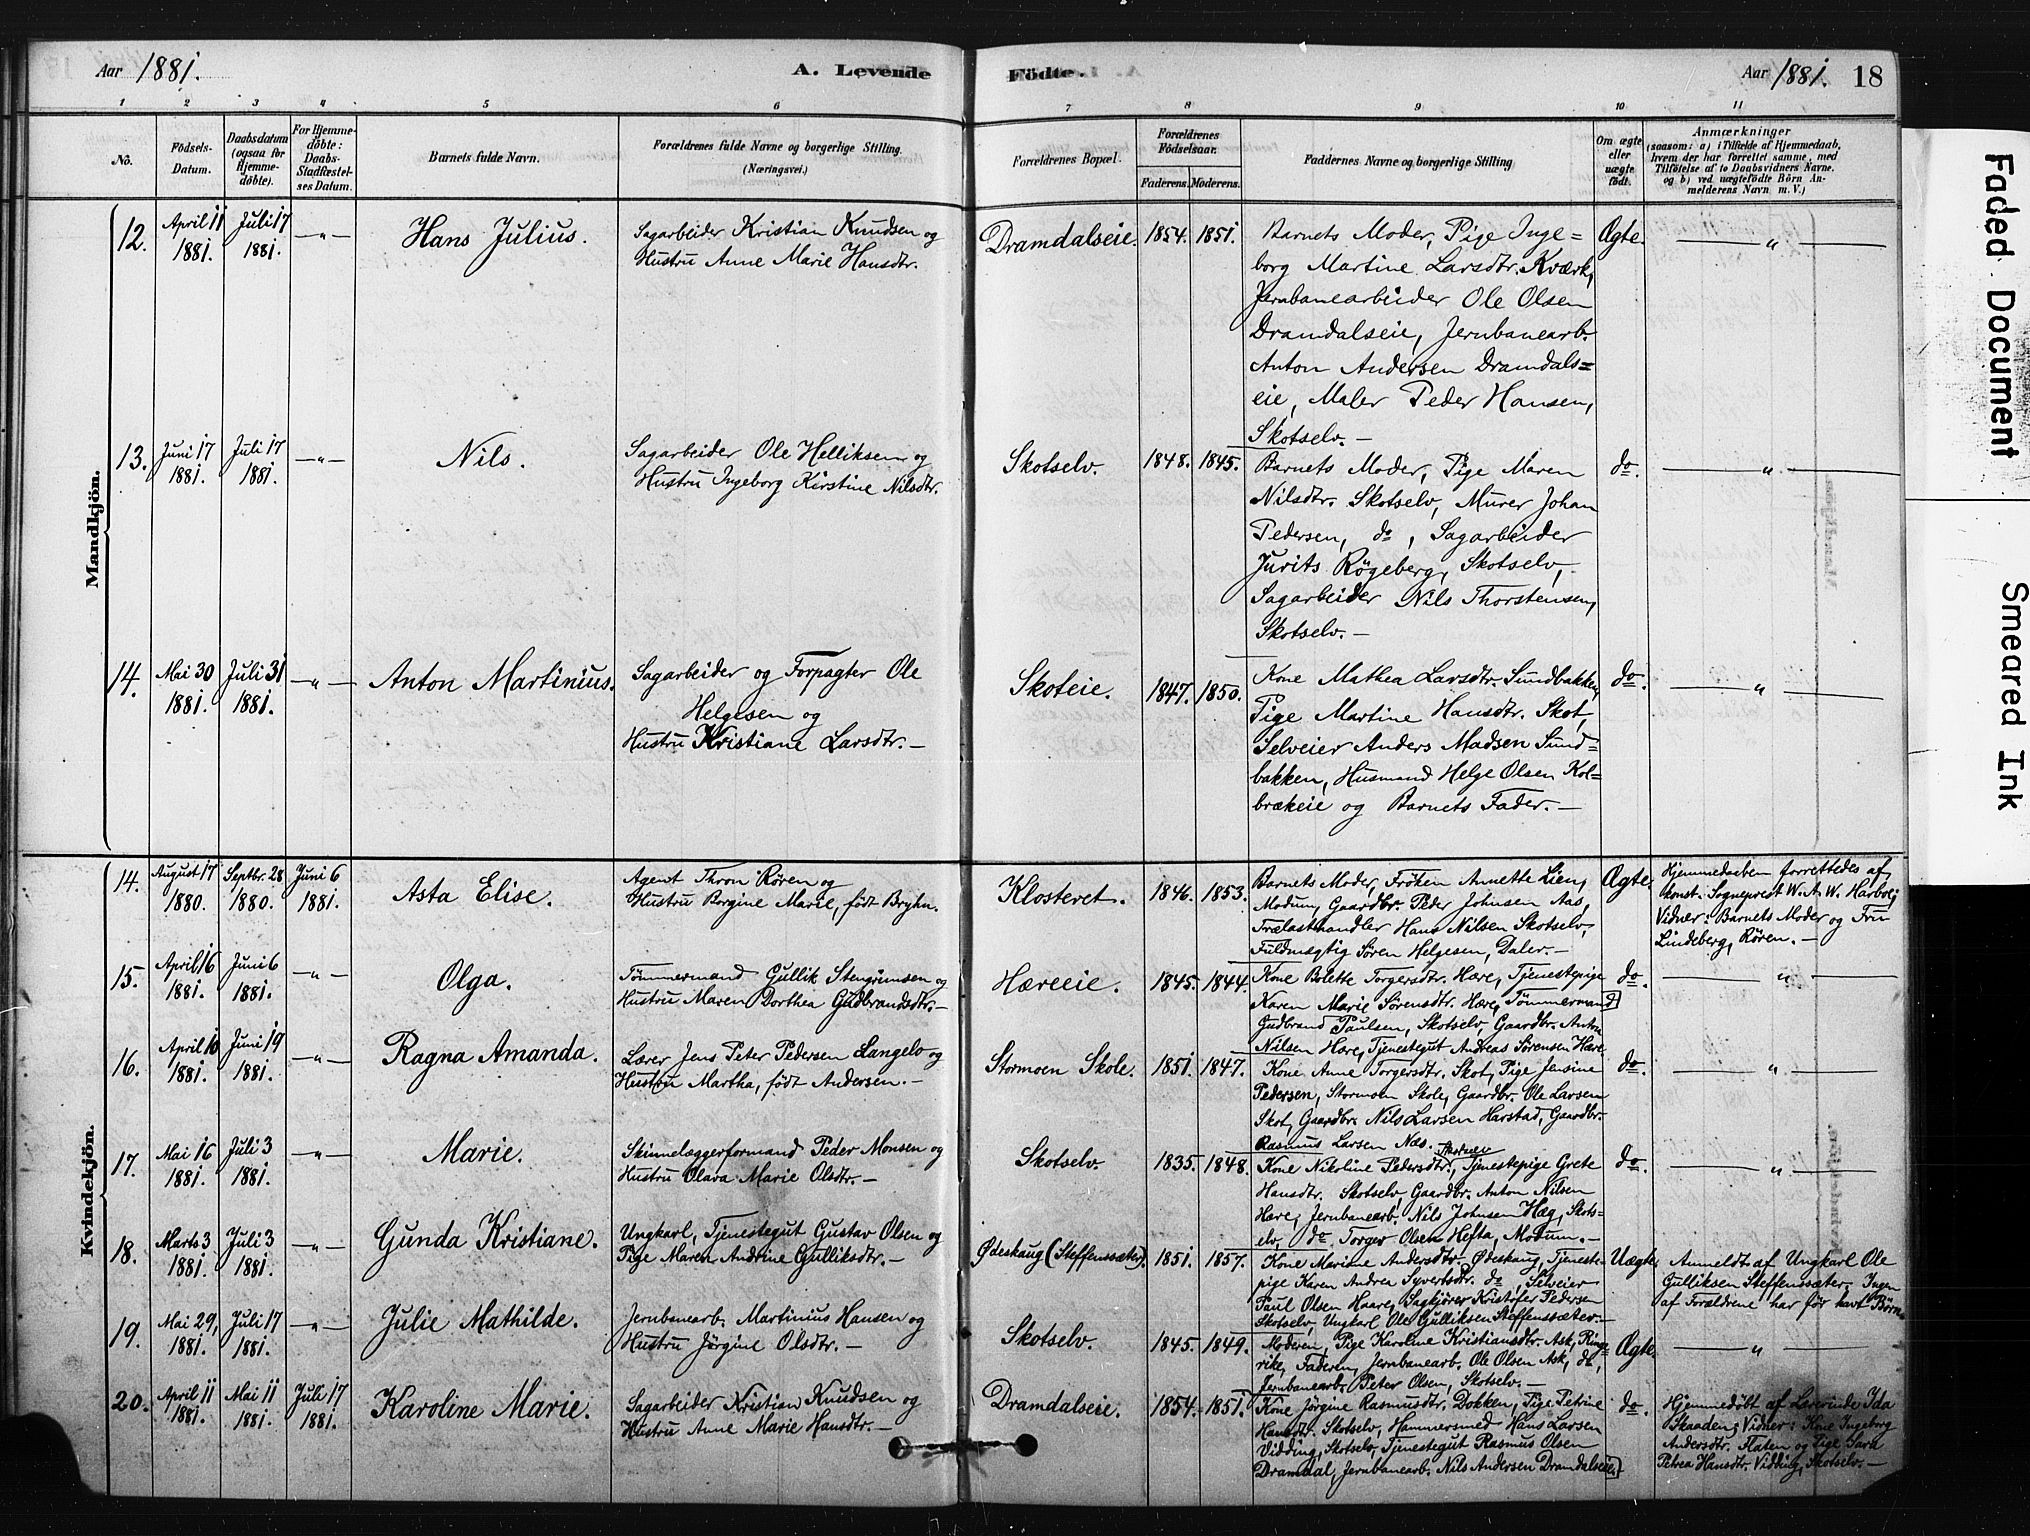 Aar 1881. A. Levende Födte. Aar 1881. 18
1 2 3 4 5 6 7 8 9 10 11
No.
Födsels-
Datum.
Daabsdatum
(ogsaa for
Hjemme-
döbte).
For Hjemme-
döbte:
Daabs-
Stadfæstel-
ses Datum.
Barnets fulde Navn.
Forældrenes fulde Navne og borgerlige Stilling.
(Næringsvei.)
Forældrenes Bopæl.
Forældrenes
Födselsaar.
Faderens. Moderens.
Faddernes Navne og borgerlige Stilling
Om ægte
eller
uægte
födt.
Anmærkninger
(saasom: a) i Tilfælde af Hjemmedaab,
hvem der har forrettet samme, med
Tilföielse af to Daabsvidners Navne,
og b) ved uægtefödte Börn An-
melderens Navn m. V.)
Mandkjön.
12.
April 11
1881.
Juli 17
1881.
—„—
Hans Julius.
Sagarbeider Kristian Knudsen og
Hustru Anne Marie Hansdtr.
Dramdalseie. 1854. 1851.
Barnets Moder, Pige Inge=
borg Martine Larsdtr. Kværk,
Jernbanearbeider Ole Olsen
Dramdalseie, Jernbanearb.
Anton Andersen Dramdals=
eie, Maler Peder Hansen,
Skotselv.—
Ægte.
—„—
13.
Juni 17
1881.
Juli 17
1881.
—„—
Nils.
Sagarbeider Ole Helliksen og
Hustru Ingeborg Kirstine Nilsdtr.
Skotselv. 1848. 1845.
Barnets Moder, Pige Maren
Nilsdtr. Skotselv, Murer Johan
Pedersen, do, Sagarbeider
Jurits Røgeberg, Skotselv,
Sagarbeider Nils Thorstensen,
Skotselv.—
do.
—„—
14.
Mai 30
1881.
Juli 31
1881.
—„—
Anton Martinius.
Sagarbeider og Forpagter Ole
Helgesen og
Hustru Kristiane Larsdtr.—
Skoteie. 1847. 1850.
Kone Mathea Larsdtr. Sundbakken,
Pige Martine Hansdtr. Skot,
Selveier Anders Madsen Sund=
bakken, Husmand Helge Olsen Kol=
brækeie og Barnets Fader.—
do.
—„—
Kvindekjön.
14.
August 17
1880.
Septbr. 28
1880.
Juni 6
1881.
Asta Elise.
Agent Thron Røren og
Hustru Borgine Marie, født Bryhn.
Klosteret. 1846. 1853.
Barnets Moder, Frøken Annette Lien,
Modum, Gaardbr. Peder Johnsen Aas,
Trælasthandler Hans Nilsen Skotselv,
Fuldmægtig Søren Helgesen, Daler.—
Ægte.
Hjemmedaaben forrettedes af
konst. Sogneprest W. A. W. Harboe;
Vidner: Barnets Moder og Fru
Lindeberg, Røren.—
15.
April 16
1881.
Juni 6
1881.
—„—
Olga.
Tømmermand Gullik Stengrimsen og
Hustru Maren Dorthea Gudbrandsdtr.—
Hæreeie. 1845. 1844.
Kone Bolette Torgersdtr. Hære, Tjenestepige
Karen Marie Sørensdtr. Hære, Tømmermand
Gudbrand Paulsen, Skotselv, Gaardbr. Anton
Nilsen Hære, Tjenestegut Andreas Sørensen Hære.
do.
—„—
16.
April 10
1881.
Juni 19
1881.
—„—
Ragna Amanda.
Lærer Jens Peter Pedersen Langelo og
Hustru Martha, født Andersen.—
Stormoen Skole. 1851. 1847.
Kone Anne Torgersdtr. Skot, Pige Jensine
Pedersen, Stormoen Skole, Gaardbr. Ole Larsen
Skot, Gaardbr. Nils Larsen Harstad, Gaardbr.
Rasmus Larsen Næs.
do.
—„—
17.
Mai 16
1881.
Juli 3
1881.
—„—
Marie.
Skinnelæggerformand Peder Monsen og
Hustru Olava Marie Olsdtr.—
Skotselv. 1835. 1848.
Skotselv
Kone Nikoline Pedersdtr., Tjenestepige Grete
Hansdtr. Skotselv, Gaardbr. Anton Nilsen
Hære, Jernbanearb. Nils Johnsen Hæg, Skots=
elv, do Torger Olsen Hefta, Modum.—
do.
—„—
18.
Marts 3
1881.
Juli 3
1881.
—„—
Gunda Kristiane.
Ungkarl, Tjenestegut Gustav Olsen og
Pige Maren Andrine Gulliksdtr.—
Ødeskaug (Steffenssæter). 1851. 1857.
Kone Mariane Andersdtr. Ødeskaug, Tjeneste=
pige Karen Andrea Syvertsdtr. do, Selveier
Paul Olsen Haare, Sagkjører Kristofer Pedersen
Skotselv, Ungkarl Ole Gulliksen Steffenssæter.—
Uægte.
Anmeldt af Ungkarl Ole
Gulliksen Steffenssæter. Ingen
af Forældrene har før havt Børn.
19.
Mai 29,
1881.
Juli 17
1881.
—„—
Julie Mathilde.
Jernbanearb. Martinius Hansen og
Hustru Jörgine Olsdtr.—
Skotselv. 1845. 1849.
Moderen, Pige Karoline Kristiansdtr. Ask, Ringe=
rike, Faderen, Jernbanearb. Ole Olsen Ask, do,
Jernbanearb. Peter Olsen, Skotselv.—
Ægte.
—„—
20.
April 11
1881.
Mai 11
1881.
Juli 17
1881.
Karoline Marie.
Sagarbeider Kristian Knudsen og
Hustru Anne Marie Hansdtr.—
Dramdalseie. 1854. 1851.
Kone Jörgine Rasmusdtr. Dokken, Pige Petrine
Hansdtr. Skotselv, Hammersmed Hans Larsen
Vidding, Skotselv, Tjenestegut Rasmus Olsen
Dramdal, Jernbanearb. Nils Andersen Dramdalseie.
do.
Hjemmedøbt af Lærerinde Ida
Skaaden; Vidner: Kone Ingeborg
Andersdtr. Flaten og Pige Sara
Petrea Hansdtr. Vidding, Skotselv.—
Faded Document
Smeared Ink